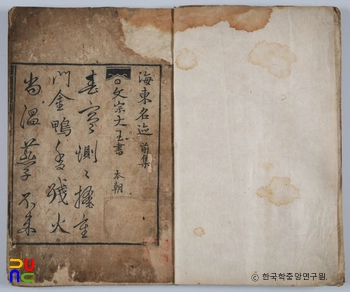 海東名迹 前集
文宗大王書 本朝
春寒惻〻掩重
門金鴨香殘火
尚溫燕子不來
ⓒ 한국학중앙연구원